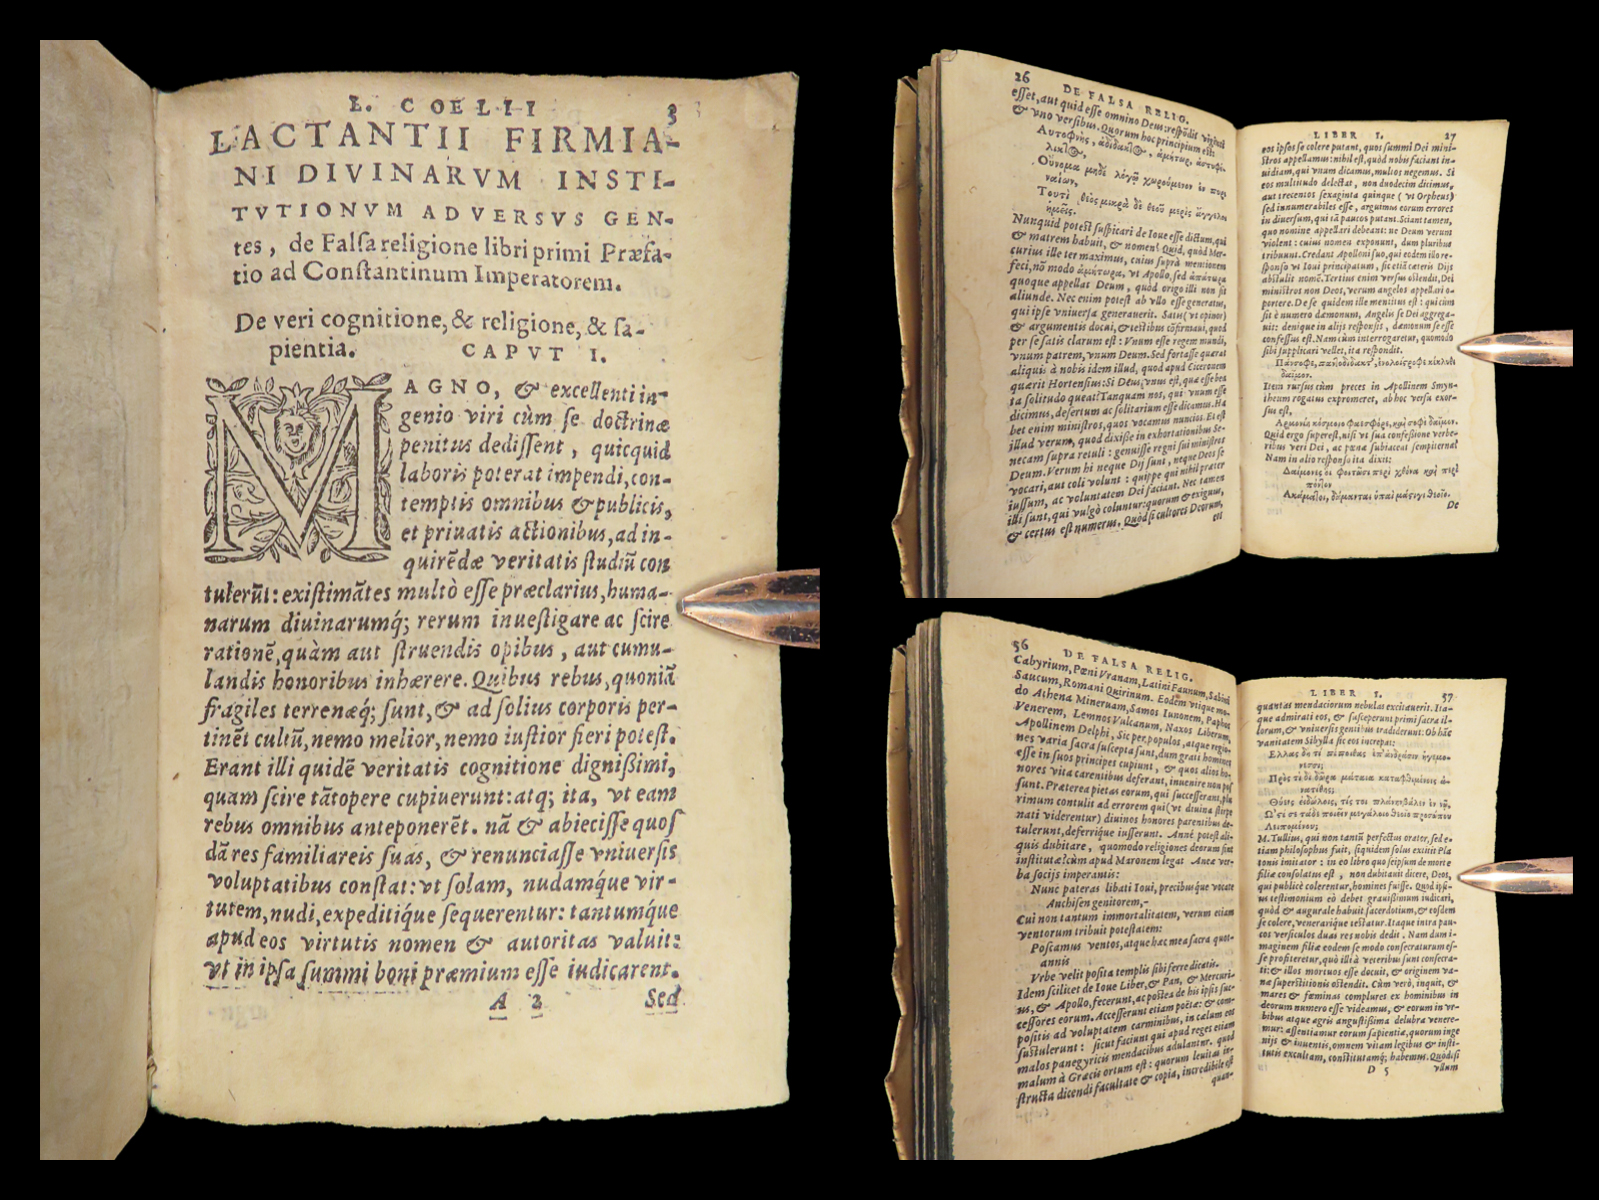 L. COELII 3
LACTANTII FIRMIA-
NI DIVINARVM INSTI-
TVTIONVM ADVERSVS GEN-
tes, de Falſa religione libri primi Præfa-
tio ad Conſtantinum Imperatorem.
De veri cognitione, & religione, & ſa-
pientia. CAPVT I.
MAGNO, & excellenti in-
genio viri cùm ſe doctrinæ
penitus dediſſent, quicquid
laboris poterat impendi, con-
temptis omnibus & publicis,
et priuatis actionibus, ad in-
quirẽdæ veritatis ſtudiũ con
tulerũt: exiſtimãtes multò eſſe præclarius, huma-
narum diuinarumq́; rerum inueſtigare ac ſcire
rationẽ, quàm aut ſtruendis opibus, aut cumu-
landis honoribus inhærere. Quibus rebus, quoniã
fragiles terrenæq́; ſunt, & ad ſolius corporis per-
tinẽt cultũ, nemo melior, nemo iuſtior fieri poteſt.
Erant illi quidẽ veritatis cognitione digniſsimi,
quam ſcire tãtopere cupiuerunt: atq; ita, vt eam
rebus omnibus anteponerẽt. nã & abieciſſe quoſ
dã res familiareis ſuas, & renunciaſſe vniuerſis
voluptatibus conſtat: vt ſolam, nudamq́ue vir-
tutem, nudi, expeditiq́ue ſequerentur: tantumq́ue
apud eos virtutis nomen & autoritas valuit:
vt in ipſa ſummi boni præmium eſſe iudicarent.
A 2 Sed
26 DE FALSA RELIG.
eſſet, aut quid eſſe omnino Deus: reſpõdit viginti
& vno verſibus. Quorum hoc principium eſt:
Nunquid poteſt ſuſpicari de Ioue eſſe dictum, qui
& matrem habuit, & nomen? Quid, quòd Mer-
curius ille ter maximus, cuius ſuprà mentionem
feci, nõ modo ἀμήτορα, vt Apollo, ſed ἀπάτορα
quoque appellat Deum, quòd origo illi non ſit
aliunde. Nec enim poteſt ab vllo eſſe generatus,
qui ipſe vniuerſa generauerit. Satis (vt opinor)
& argumentis docui, & teſtibus cõfirmaui, quod
per ſe ſatis clarum eſt: Vnum eſſe regem mundi,
vnum patrem, vnum Deum. Sed fortaſſe quærat
aliquis à nobis idem illud, quod apud Ciceronem
quærit Hortenſius: Si Deus vnus eſt, quæ eſſe bea
ta ſolitudo queat? Tanquam nos, qui vnum eſſe
dicimus, deſertum ac ſolitarium eſſe dicamus. Ha
bet enim miniſtros, quos vocamus nuncios. Et eſt
illud verum, quod dixiſſe in exhortationibus Se-
necam ſupra retuli: genuiſſe regni ſui miniſtros
Deum. Verum hi neque Dij ſunt, neque Deos ſe
vocari, aut coli volunt: quippe qui nihil præter
iuſſum, ac voluntatem Dei faciant. Nec tamen
illi ſunt, qui vulgò coluntur: quorum & exiguus,
& certus eſt numerus. Quòd ſi cultores Deorum,
eos
LIBER I. 27
eos ipſos ſe colere putant, quos ſummi Dei mini-
ſtros appellamus: nihil eſt, quòd nobis faciant in-
uidiam, qui vnum dicamus, multos negemus. Si
eos multitudo delectat, non duodecim dicimus,
aut trecentos ſexaginta quinque (vt Orpheus)
ſed innumerabiles eſſe, arguimus eorum errores
in diuerſum, qui tã paucos putant. Sciant tamen,
quo nomine appellari debeant: ne Deum verum
violent: cuius nomen exponunt, dum pluribus
tribuunt. Credant Apollini ſuo, qui eodem illo re-
ſponſo vt Ioui principatum, ſic etiã cæteris Dijs
abſtulit nomẽ. Tertius enim verſus oſtendit, Dei
miniſtros non Deos, verum angelos appellari o-
portere. De ſe quidem ille mentitus eſt: qui cùm
ſit è numero dæmonum, Angelis ſe Dei aggrega-
uit: denique in alijs reſponſis, dæmonum ſe eſſe
confeſſus eſt. Nam cùm interrogaretur, quomodo
ſibi ſupplicari vellet, ita reſpondit.
Item rurſus cùm preces in Apollinem Smyn-
theum rogatus expromeret, ab hoc verſu exor-
ſus eſt,
Quid ergo ſupereſt, niſi vt ſua confeſſione verbe-
ribus veri Dei, ac pœnæ ſubiaceat ſempiternæ?
Nam in alio reſponſo ita dixit:
De
56 DE FALSA RELIG.
Cabyrium, Pœni Vranam, Latini Faunum, Sabini
Sancum, Romani Quirinum. Eodẽ vtique mo-
do Athenæ Mineruam, Samos Iunonem, Paphos
Venerem, Lemnos Vulcanum, Naxos Liberum,
Apollinem Delphi. Sic per populos, atque regio-
nes varia ſacra ſuſcepta ſunt, dum grati homines
eſſe in ſuos principes cupiunt, & quos alios ho-
nores vita carentibus deferant, inuenire non poſ
ſunt. Præterea pietas eorum, qui ſucceſſerant, plu
rimum contulit ad errorem: qui (vt diuina ſtirpe
nati viderentur) diuinos honores parentibus de-
tulerunt, deferriq́ue iuſſerunt. Anne poteſt ali-
quis dubitare, quomodo religiones deorum ſint
inſtitutæ? cùm apud Maronem legat Aeneæ ver-
ba ſocijs imperantis:
Nunc pateras libati Ioui, precibúſque vocate
Anchiſen genitorem,-
Cui non tantum immortalitatem, verum etiam
ventorum tribuit poteſtatem:
Poſcamus ventos, atque hæc mea ſacra quot-
annis
Vrbe velit poſita templis ſibi ferre dicatis.
Idem ſcilicet de Ioue Liber, & Pan, & Mercuri-
us, & Apollo, fecerunt, ac poſtea de his ipſis ſuc-
ceſſores eorum. Acceſſerunt etiam poëtæ: & com-
poſitis ad voluptatem carminibus, in cælum eos
ſuſtulerunt: ſicut faciunt qui apud reges etiam
malos panegyricis mendacibus adulantur. quod
malum à Græcis ortum eſt: quorum leuitas in-
ſtructa dicendi facultate & copia, incredibile eſt
quan-
LIBER I. 57
quantas mendaciorum nebulas excitauerit. Ita-
que admirati eos, & ſuſceperunt primi ſacra il-
lorum, & vniuerſis gentibus tradiderunt: Ob hãc
vanitatem Sibylla ſic eos increpat:
M. Tullius, qui non tantũ perfectus orator, ſed e-
tiam philoſophus fuit, ſiquidem ſolus extitit Pla
tonis imitator: in eo libro quo ſeipſum de morte
filiæ conſolatus eſt, non dubitauit dicere, Deos,
qui publicè colerentur, homines fuiſſe. Quod ipſi-
us teſtimonium eò debet grauiſſimum iudicari,
quòd & augurale habuit ſacerdotium, & eoſdem
ſe colere, venerariq́ue teſtatur. Itaque intra pau-
cos verſiculos duas res nobis dedit. Nam dum i-
maginem filiæ eodem ſe modo conſecraturum eſ-
ſe profiteretur, quo illi à veteribus ſunt conſecra-
ti: & illos mortuos eſſe docuit, & originem va-
næ ſuperſtitionis oſtendit. Cùm verò, inquit, &
mares & fœminas complures ex hominibus in
deorum numero eſſe videamus, & eorum in vr-
bibus atque agris anguſtiſsima delubra venere-
mur: aſſentiamur eorum ſapientiæ, quorum inge
nijs & inuentis, omnem vitam legibus & inſti-
tutis excultam, conſtitutamq́; habemus. Quòd ſi
D 5 vllum